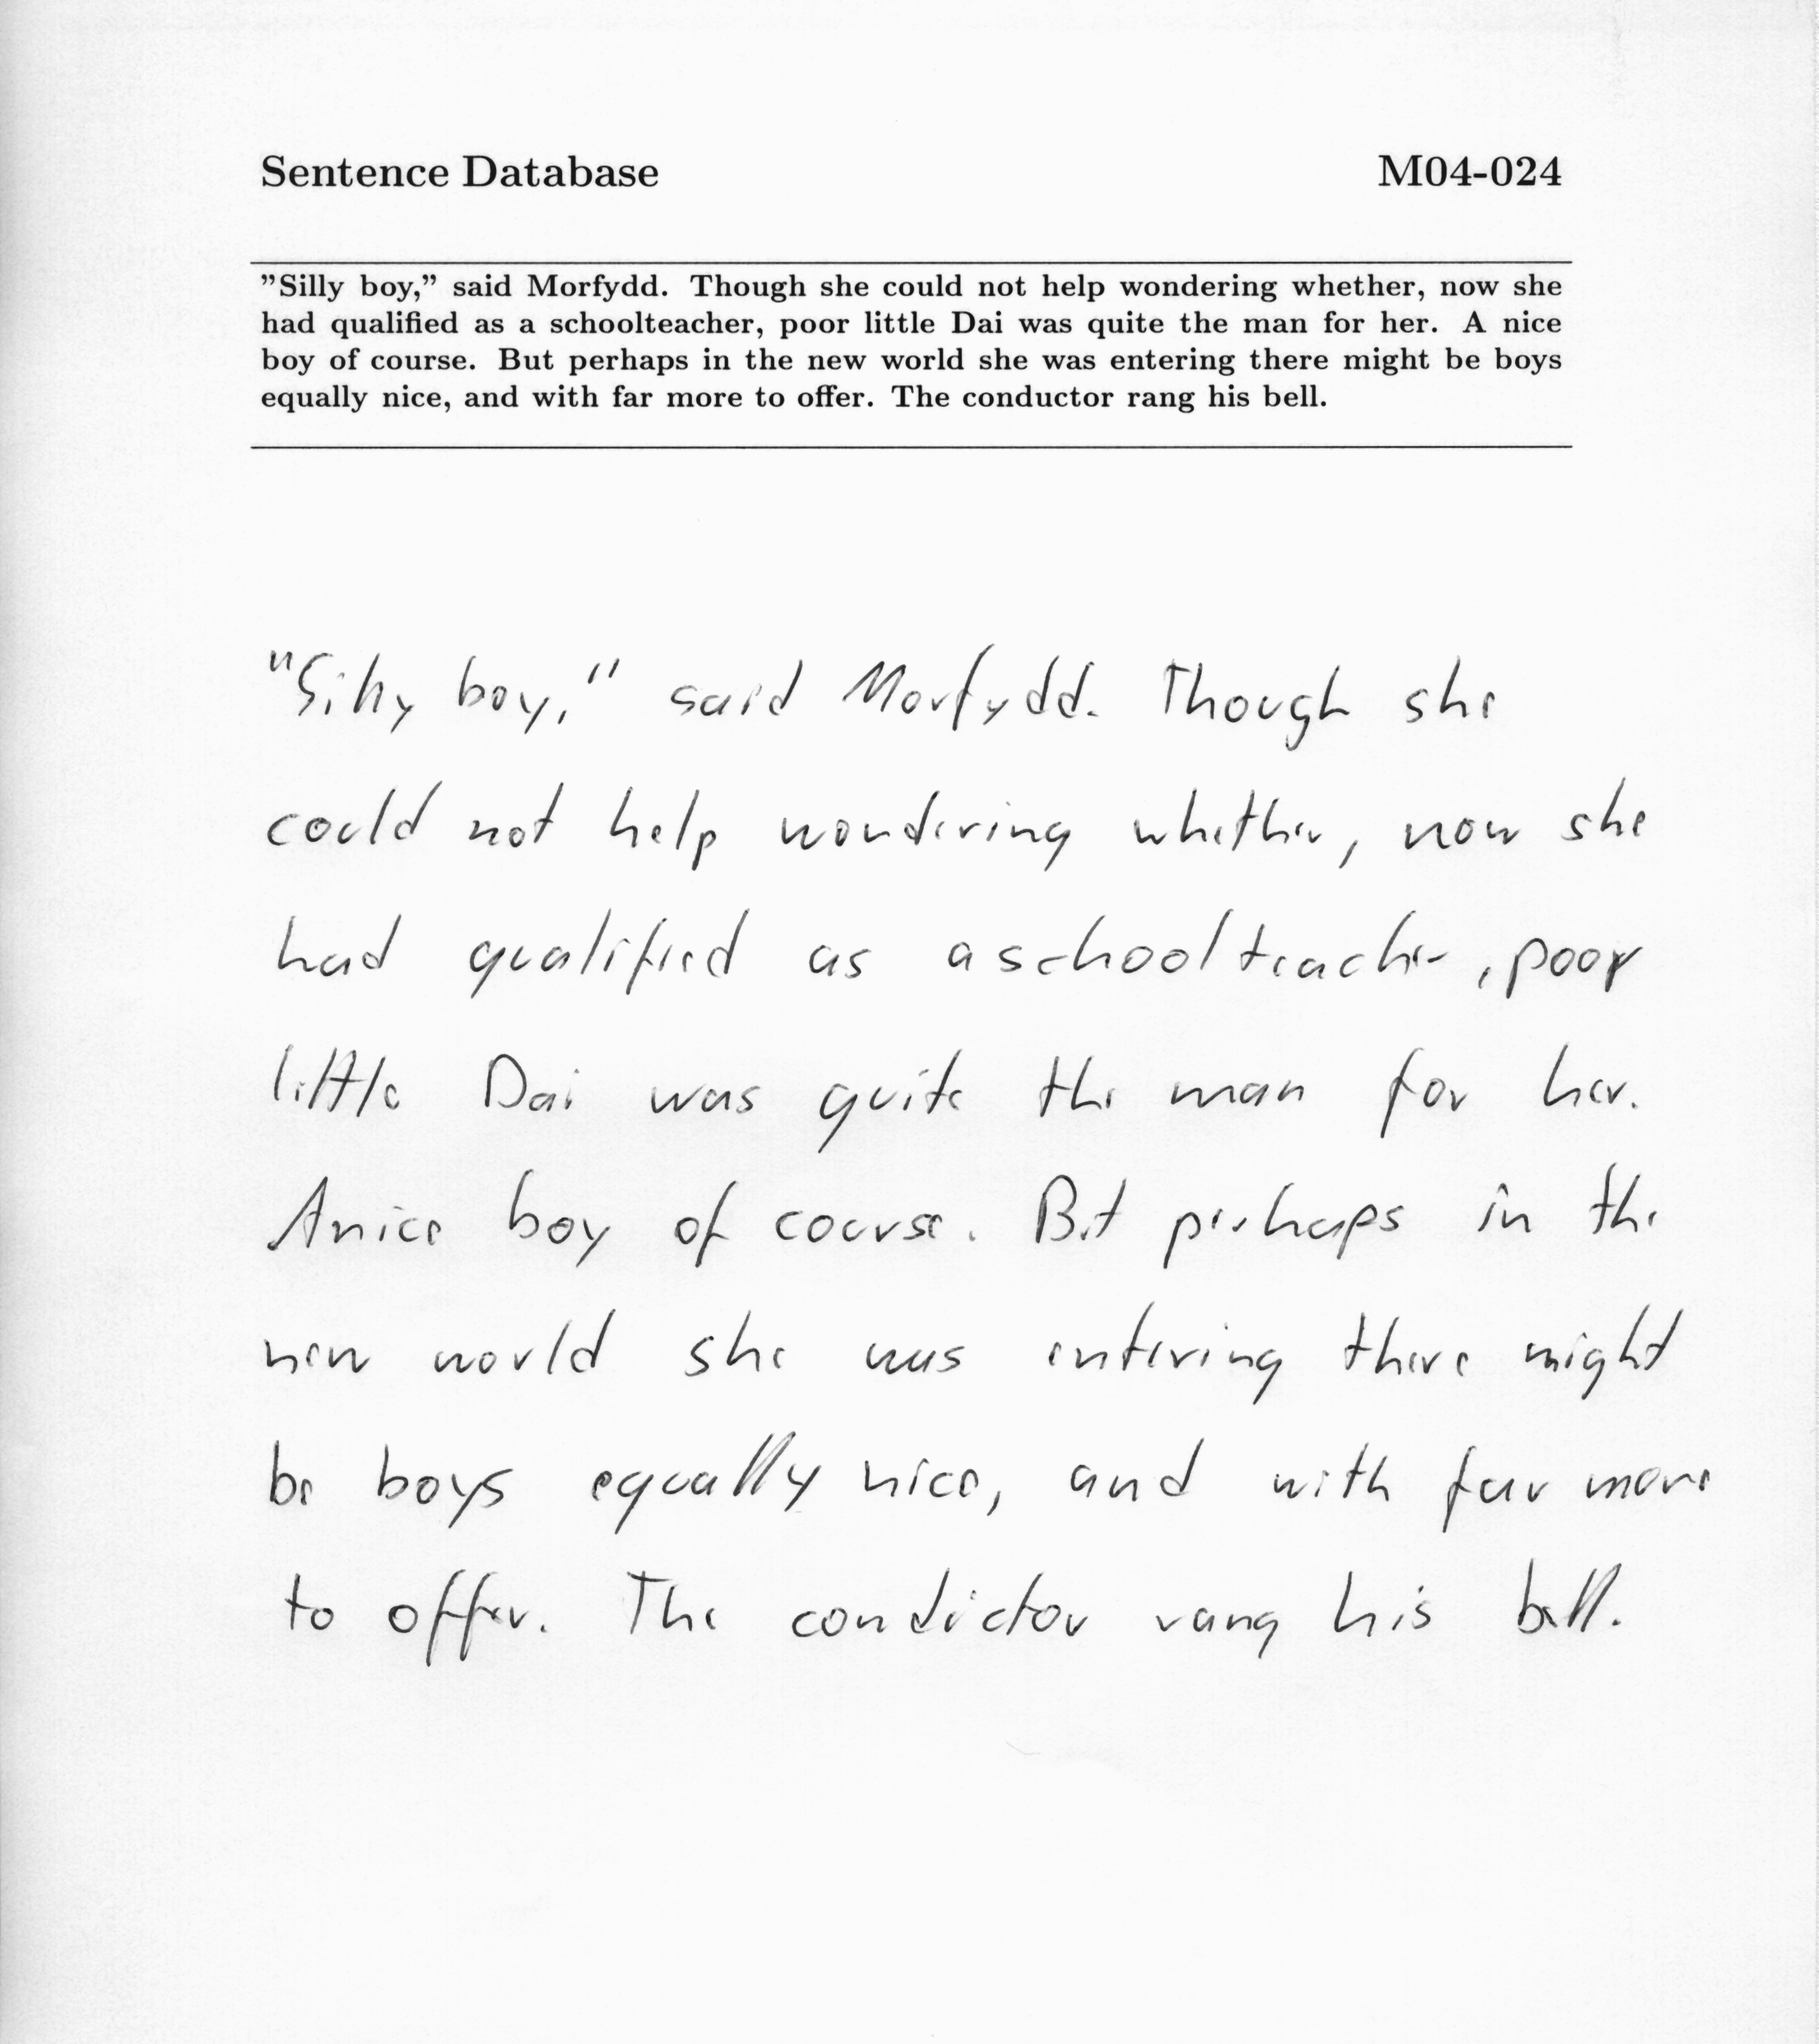 Sentence Database M04-024
"Silly boy," said Morfydd. Though she could not help wondering whether, now she
had qualified as a schoolteacher, poor little Dai was quite the man for her. A nice
boy of course. But perhaps in the new world she was entering there might be boys
equally nice, and with far more to offer. The conductor rang his bell.
"Silly boy," said Morfydd. Though she
could not help wondering whether, now she
had qualified as a schoolteacher, poor
little Dai was quite the man for her.
A nice boy of course. But perhaps in the
new world she was entering there might
be boys equally nice, and with far more
to offer. The conductor rang his bell.